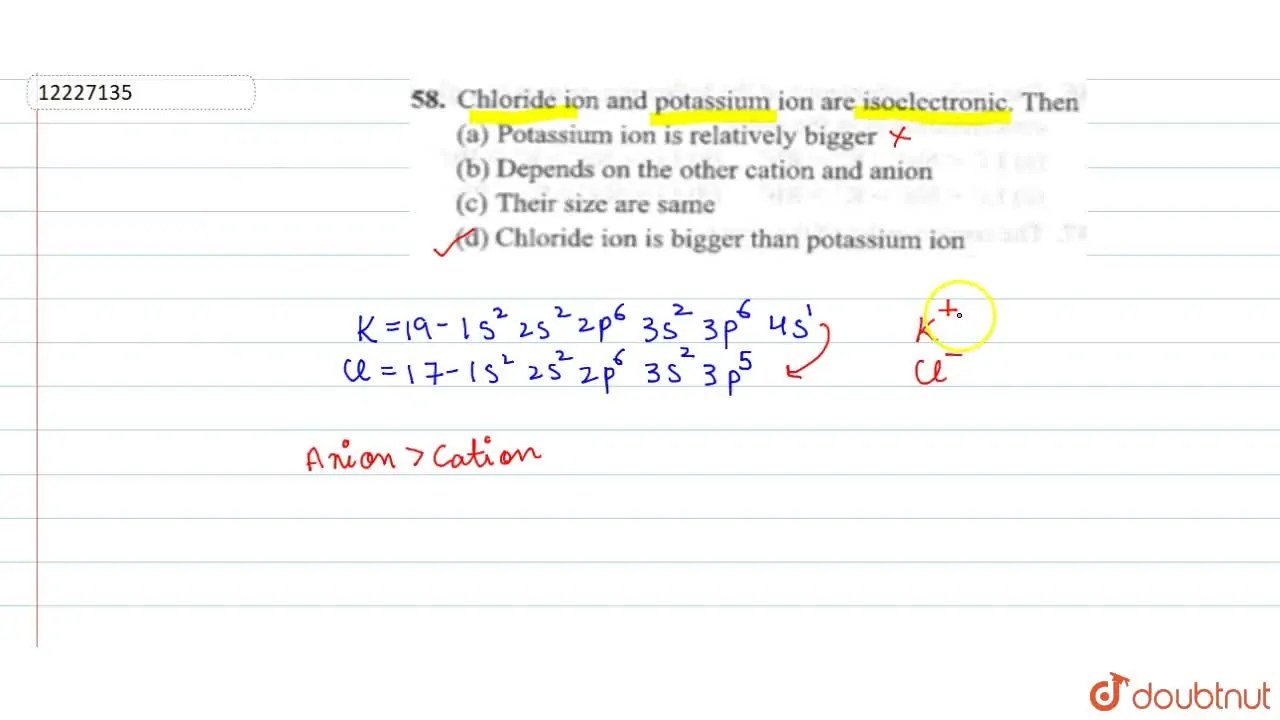 12227135
58. Chloride ion and potassium ion are isoelectronic. Then
(a) Potassium ion is relatively bigger ×
(b) Depends on the other cation and anion
(c) Their size are same
✓(d) Chloride ion is bigger than potassium ion
K = 19 - 1s² 2s² 2p⁶ 3s² 3p⁶ 4s¹ K⁺
Cl = 17 - 1s² 2s² 2p⁶ 3s² 3p⁵ Cl⁻
Anion > Cation
doubtnut